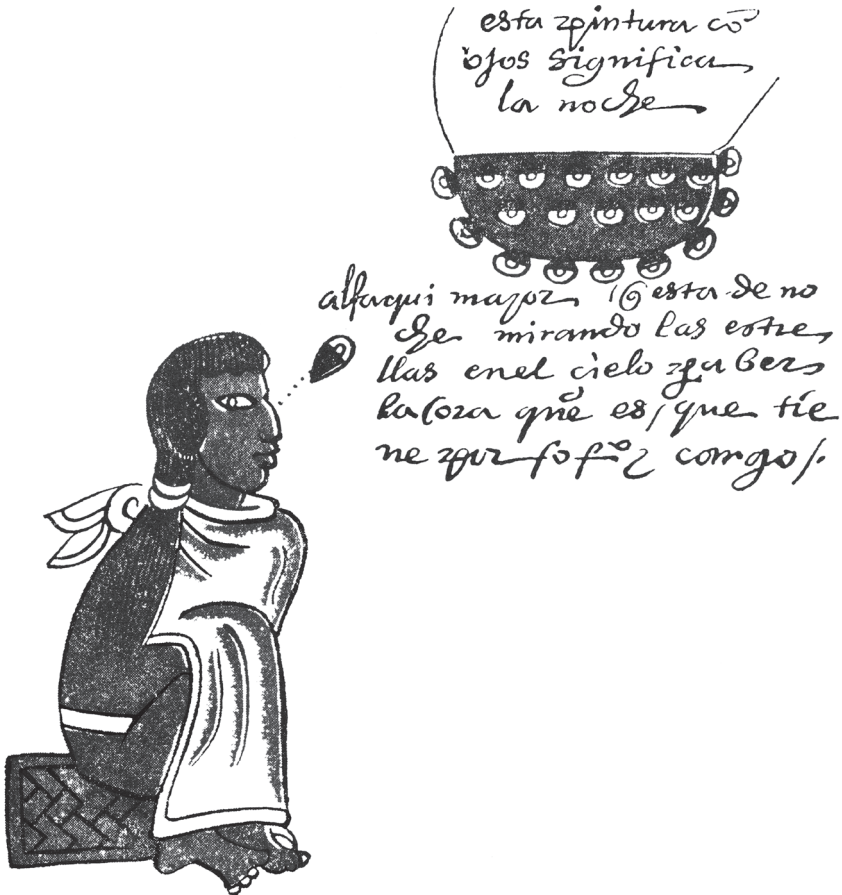 esta pintura cō
ojos significa
la noche
alfaqui mayor q̄ esta de no
che mirando las estre
llas en el cielo y a ber
la ora que es / que tie
ne por so ofiº y cargo /.